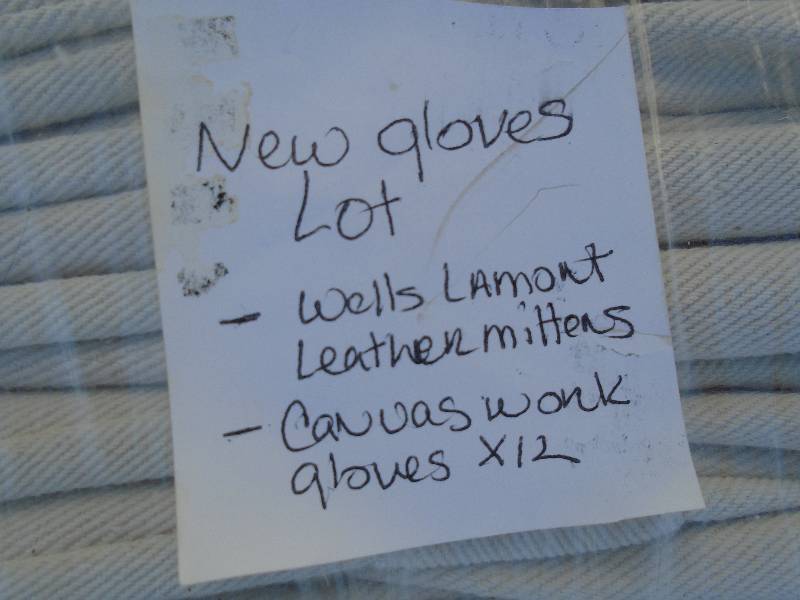 New gloves
Lot
- Wells Lamont
Leather mittens
- Canvas work
gloves X12